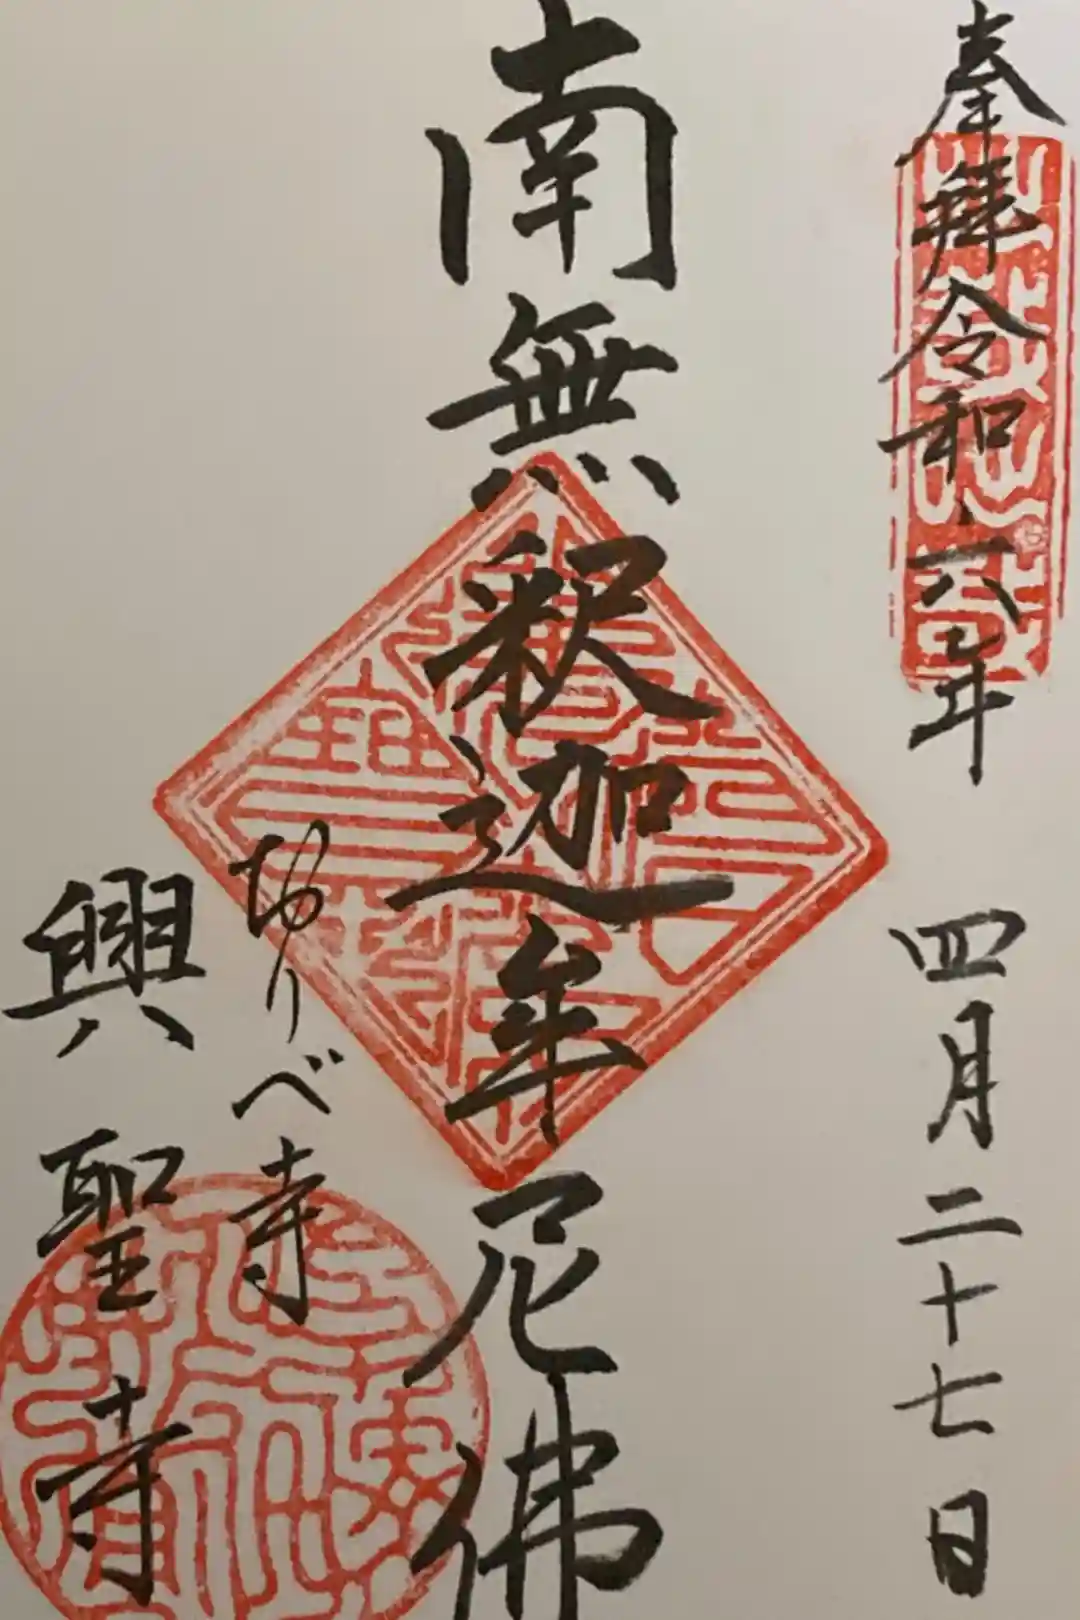 奉拜令和六年 四月二十七日
南無釈迦牟尼佛
おりべ寺
興聖寺